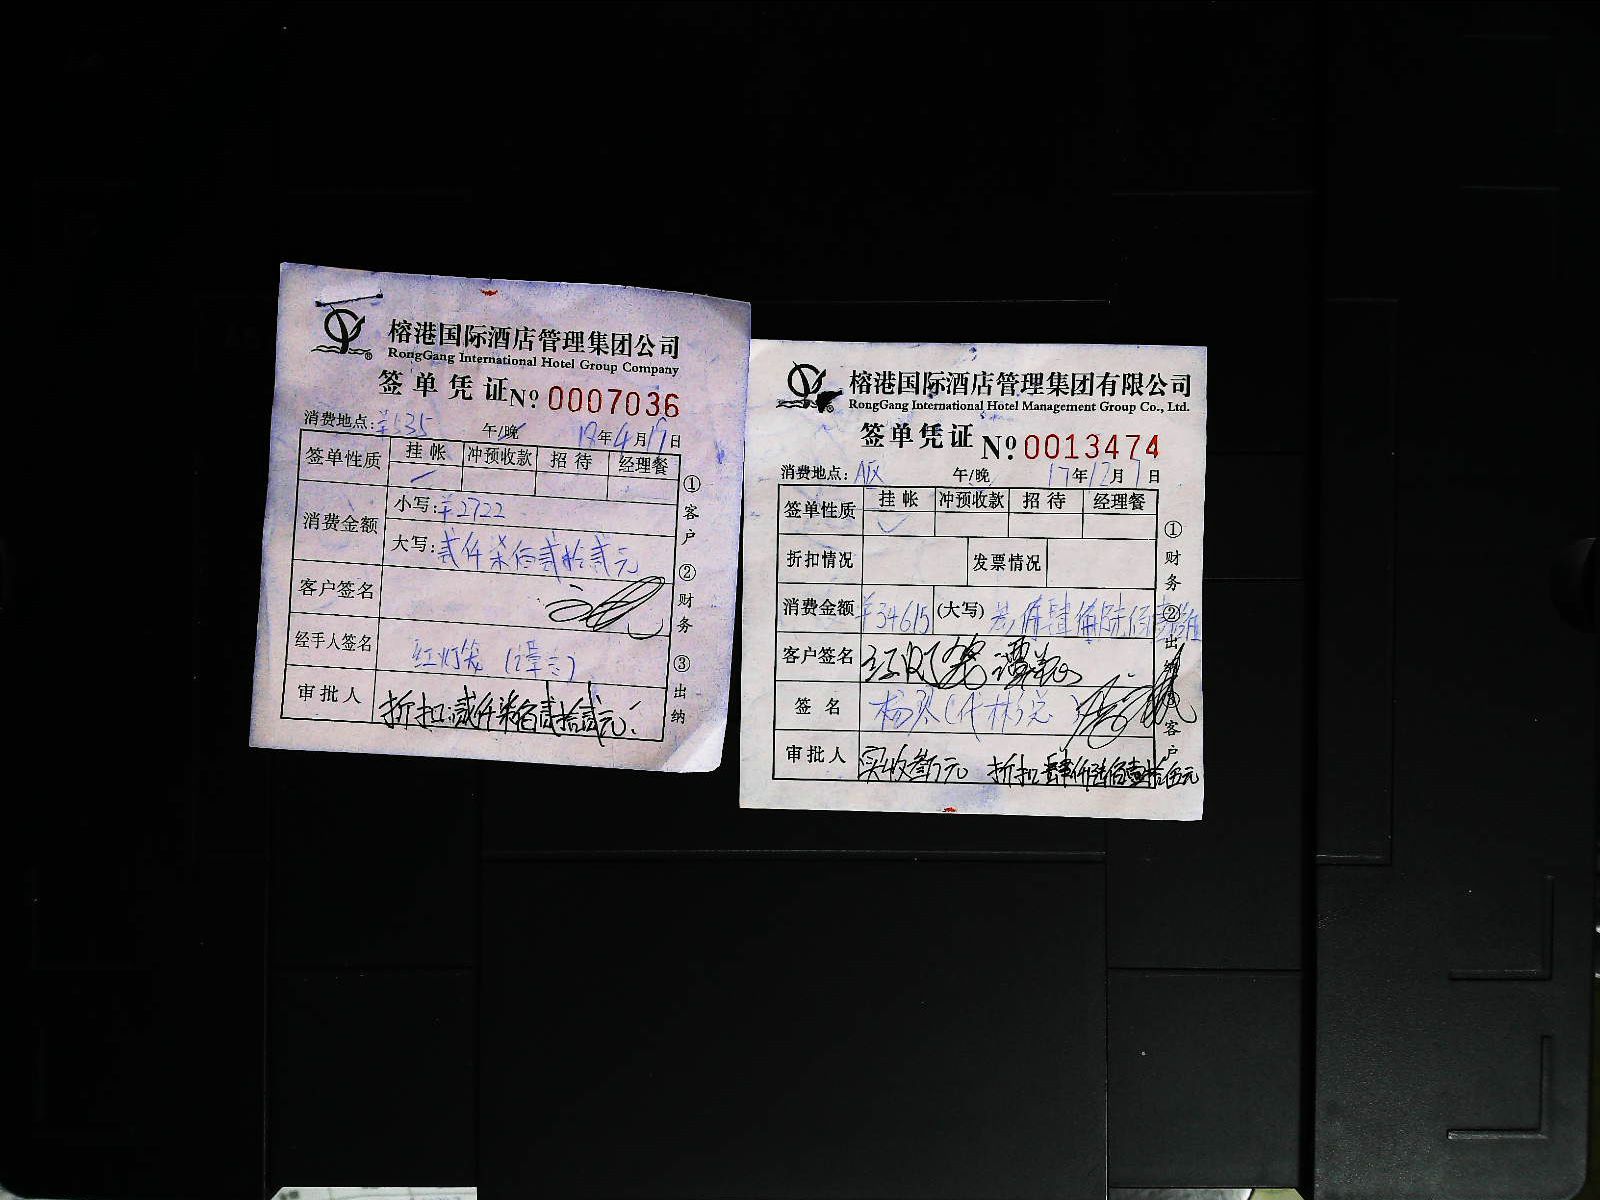 榕港国际酒店管理集团公司
RongGang International Hotel Group Company
签单凭证 No. 0007036
消费地点: 午/晚 18年4月19日
签单性质 挂帐 冲预收款 招待 经理餐
消费金额 小写: ¥2722
大写: 贰仟柒佰贰拾贰元
客户签名
经手人签名
审批人 折扣:贰仟柒佰贰拾贰元.
①客户 ②财务 ③出纳
榕港国际酒店管理集团有限公司
RongGang International Hotel Management Group Co., Ltd.
签单凭证 No. 0013474
消费地点: A区 午/晚 17年12月7日
签单性质 挂帐 冲预收款 招待 经理餐
折扣情况 发票情况
消费金额 ¥34615 (大写)
客户签名
签名 杨琴(代林总)
审批人 实收叁万元 折扣肆仟陆佰壹拾伍元
①财务 ②出 客户